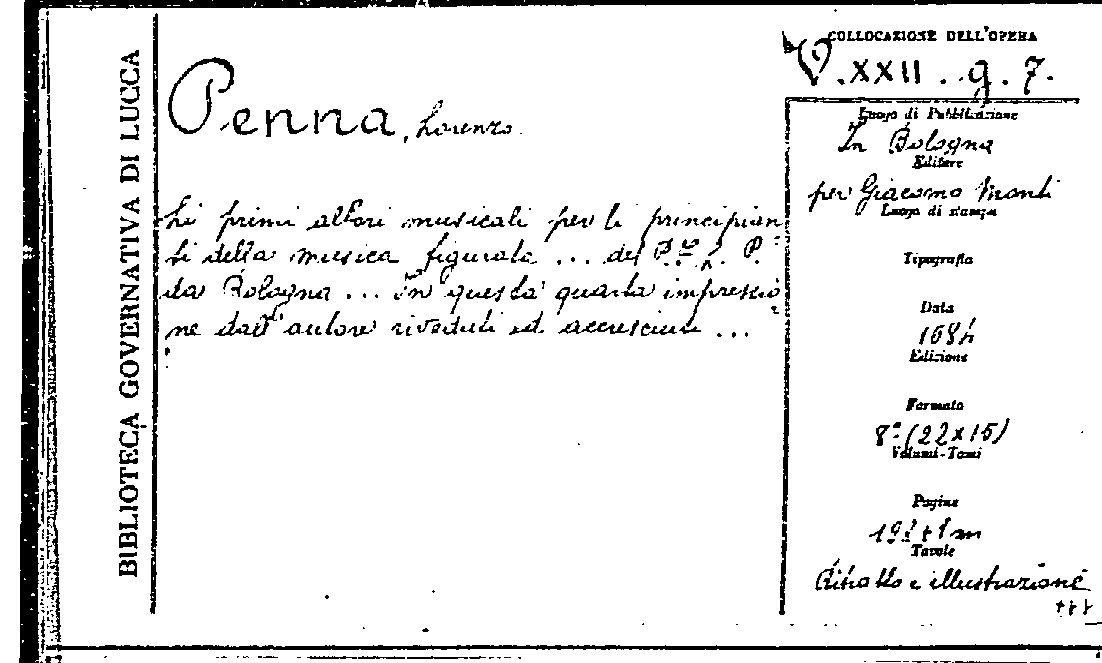 BIBLIOTECA GOVERNATIVA DI LUCCA
Penna, Lorenzo
Li primi albori musicali per li principian
ti della musica figurata ... del P.re L. P.
da Bologna ... in questa quarta impressio
ne dall'autore riveduti ed accresciuti ...
COLLOCAZIONE DELL'OPERA
.XXII..g.7.
Luogo di Pubblicazione
In Bologna
Editore
per Giacomo Monti
Luogo di stampa
Tipografia
Data
1684
Edizione
Formato
8° (22x15)
Volumi-Tomi
Pagine
Tavole
Ritratto e illustrazione